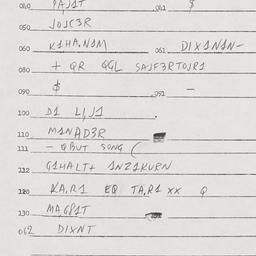 040 PAJ1T 041 $
050 JOJC3R
060 K1HA.N1M 061 DIX1N1N-
080 + QR QGL SAJF3RTOJR1
090 $ 091 -
100 D1 LJJ1 .
110 M1NAD3R
111 - QBUT SONG (
112 G1HALT+ 1NZ1KURN
120 KA,R1 EQ TA,R1 XX Q
130 MAGP1T
062 DIXNT